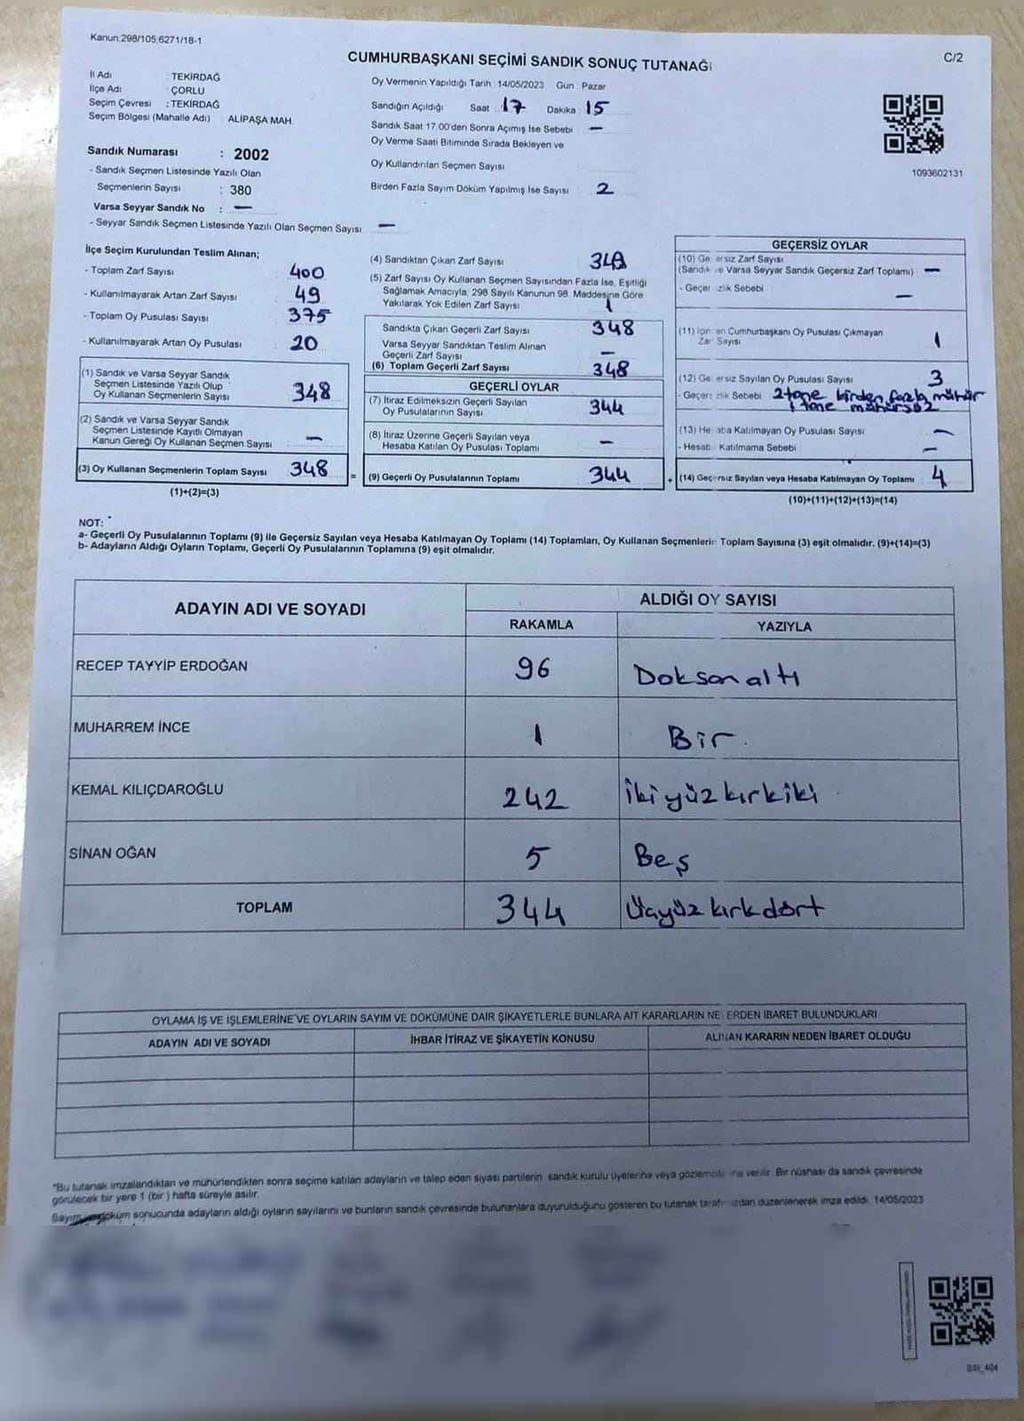 Kanun:298/105;6271/18-1
CUMHURBAŞKANI SEÇİMİ SANDIK SONUÇ TUTANAĞI
C/2
İl Adı : TEKİRDAĞ
İlçe Adı : ÇORLU
Seçim Çevresi : TEKİRDAĞ
Seçim Bölgesi (Mahalle Adı) ALİPAŞA MAH.
Oy Vermenin Yapıldığı Tarih 14/05/2023 Gün : Pazar
Sandığın Açıldığı Saat : 17 Dakika : 15
Sandık Saat 17:00'den Sonra Açımış İse Sebebi —
Oy Verme Saati Bitiminde Sırada Bekleyen ve
Oy Kullandırılan Seçmen Sayısı
Birden Fazla Sayım Döküm Yapılmış İse Sayısı 2
1093602131
Sandık Numarası : 2002
- Sandık Seçmen Listesinde Yazılı Olan
Seçmenlerin Sayısı : 380
Varsa Seyyar Sandık No : —
- Seyyar Sandık Seçmen Listesinde Yazılı Olan Seçmen Sayısı —
İlçe Seçim Kurulundan Teslim Alınan;
- Toplam Zarf Sayısı 400
- Kullanılmayarak Artan Zarf Sayısı 49
- Toplam Oy Pusulası Sayısı 375
- Kullanılmayarak Artan Oy Pusulası 20
(1) Sandık ve Varsa Seyyar Sandık
Seçmen Listesinde Yazılı Olup
Oy Kullanan Seçmenlerin Sayısı 348
(2) Sandık ve Varsa Seyyar Sandık
Seçmen Listesinde Kayıtlı Olmayan
Kanun Gereği Oy Kullanan Seçmen Sayısı —
(3) Oy Kullanan Seçmenlerin Toplam Sayısı 348
(1)+(2)=(3)
(4) Sandıktan Çıkan Zarf Sayısı
(5) Zarf Sayısı Oy Kullanan Seçmen Sayısından Fazla İse, Eşitliği
Sağlamak Amacıyla, 298 Sayılı Kanunun 98. Maddesine Göre
Yakılarak Yok Edilen Zarf Sayısı 1
Sandıkta Çıkan Geçerli Zarf Sayısı 348
Varsa Seyyar Sandıktan Teslim Alınan
Geçerli Zarf Sayısı —
(6) Toplam Geçerli Zarf Sayısı 348
GEÇERLİ OYLAR
(7) İtiraz Edilmeksizin Geçerli Sayılan
Oy Pusulalarının Sayısı 344
(8) İtiraz Üzerine Geçerli Sayılan veya
Hesaba Katılan Oy Pusulası Toplamı —
= (9) Geçerli Oy Pusulalarının Toplamı 344
GEÇERSİZ OYLAR
(10) Geçersiz Zarf Sayısı
(Sandık ve Varsa Seyyar Sandık Geçersiz Zarf Toplamı) —
- Geçersizlik Sebebi —
(11) İçinden Cumhurbaşkanı Oy Pusulası Çıkmayan
Zarf Sayısı 1
(12) Geçersiz Sayılan Oy Pusulası Sayısı 3
- Geçersizlik Sebebi 2 tane birden fazla mühür
1 tane mühürsüz
(13) Hesaba Katılmayan Oy Pusulası Sayısı —
- Hesaba Katılmama Sebebi —
(14) Geçersiz Sayılan veya Hesaba Katılmayan Oy Toplamı 4
(10)+(11)+(12)+(13)=(14)
NOT:
a- Geçerli Oy Pusulalarının Toplamı (9) ile Geçersiz Sayılan veya Hesaba Katılmayan Oy Toplamı (14) Toplamları, Oy Kullanan Seçmenlerin Toplam Sayısına (3) eşit olmalıdır. (9)+(14)=(3)
b- Adayların Aldığı Oyların Toplamı, Geçerli Oy Pusulalarının Toplamına (9) eşit olmalıdır.
ADAYIN ADI VE SOYADI
ALDIĞI OY SAYISI
RAKAMLA YAZIYLA
RECEP TAYYİP ERDOĞAN 96 Doksanaltı
MUHARREM İNCE 1 Bir.
KEMAL KILIÇDAROĞLU 242 İkiyüzkırkiki
SİNAN OĞAN 5 Beş
TOPLAM 344 Üçyüzkırkdört
OYLAMA İŞ VE İŞLEMLERİNE VE OYLARIN SAYIM VE DÖKÜMÜNE DAİR ŞİKAYETLERLE BUNLARA AİT KARARLARIN NELERDEN İBARET BULUNDUKLARI
ADAYIN ADI VE SOYADI İHBAR İTİRAZ VE ŞİKAYETİN KONUSU ALINAN KARARIN NEDEN İBARET OLDUĞU
*Bu tutanak imzalandıktan ve mühürlendikten sonra seçime katılan adayların ve talep eden siyasi partilerin sandık kurulu üyelerine veya gözlemcilerine verilir. Bir nüshası da sandık çevresinde
görülecek bir yere 1 (bir) hafta süreyle asılır.
Sayım döküm sonucunda adayların aldığı oyların sayılarını ve bunların sandık çevresinde bulunanlara duyurulduğunu gösteren bu tutanak tarafımızdan düzenlenerek imza edildi. 14/05/2023